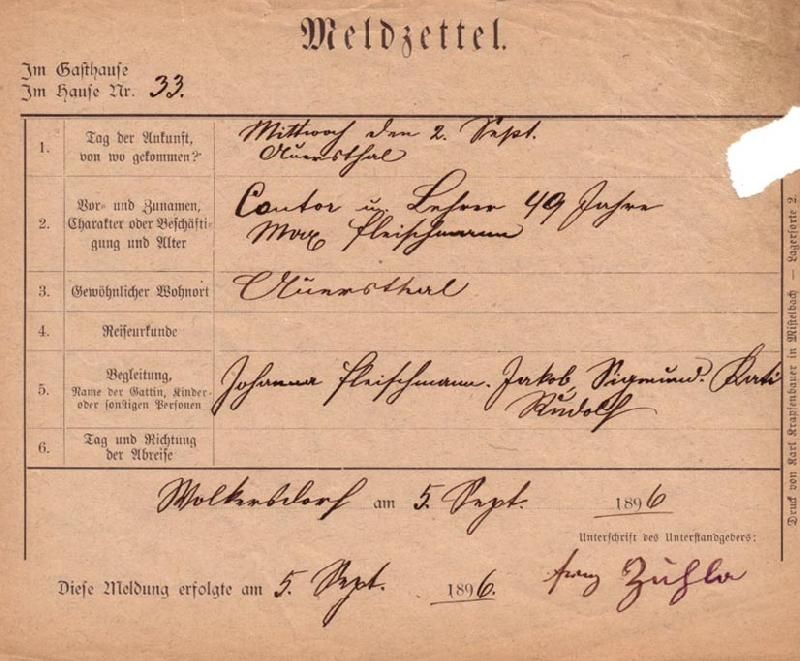 Meldzettel.
Im Gasthause
Im Hause Nr. 33.
1. Tag der Ankunft, von wo gekommen? Mittwoch den 2. Sept.
Auersthal
2. Vor- und Zunamen, Charakter oder Beschäftigung und Alter Cantor u. Lehrer 49 Jahre
Max Fleischmann
3. Gewöhnlicher Wohnort Auersthal
4. Reiseurkunde
5. Begleitung, Name der Gattin, Kinder- oder sonstigen Personen Johanna Fleischmann. Jakob, Sigmund. Kati
Rudolf
6. Tag und Richtung der Abreise
Wolkersdorf am 5. Sept. 1896
Unterschrift des Unterstandgebers:
Diese Meldung erfolgte am 5. Sept. 1896. Franz
Druck von Karl Krapfenbauer in Mistelbach — Lagersorte 2.